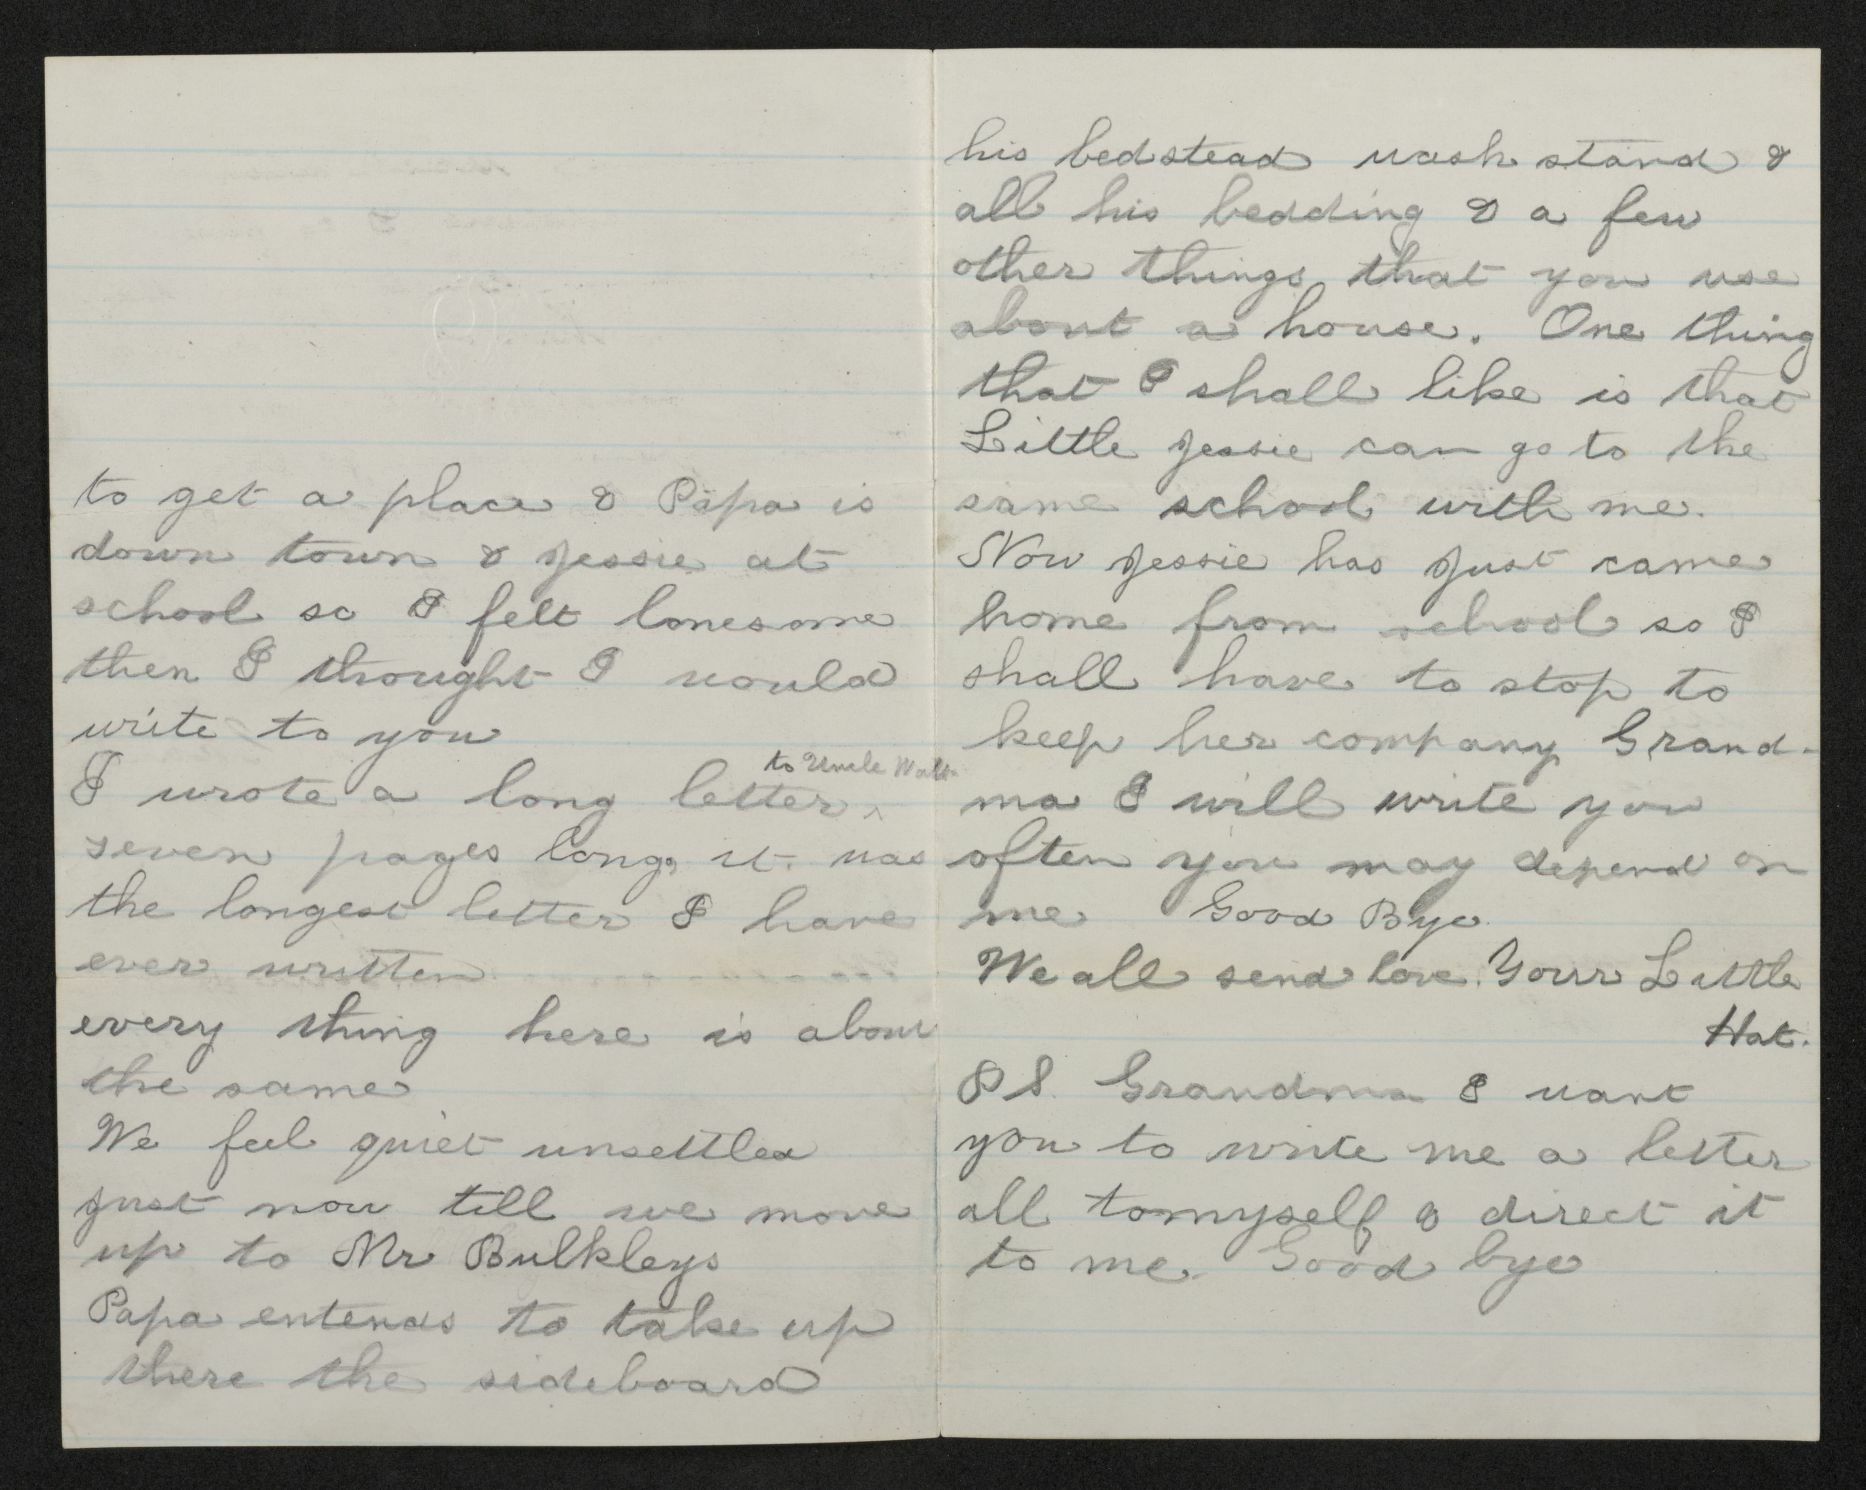 to get a place & Papa is
down town & Jessie at
school so I felt lonesome
then I thought I would
write to you
to Uncle Walt
I wrote a long letter ^
seven pages long, it was
the longest letter I have
ever written
every thing here is about
the same
We feel quiet unsettled
just now till we move
up to Mr Bulkleys
Papa entends to take up
there the sideboard
his bedstead wash stand &
all his bedding & a few
other things that you use
about a house. One thing
that I shall like is that
Little Jessie can go to the
same school with me.
Now Jessie has just came
home from school so I
shall have to stop to
keep her company Grand-
ma I will write you
often you may depend on
me Good Bye
We all send love. Your Little
Hat.
P S. Grandma I want
you to write me a letter
all tomyself & direct it
to me. Good bye